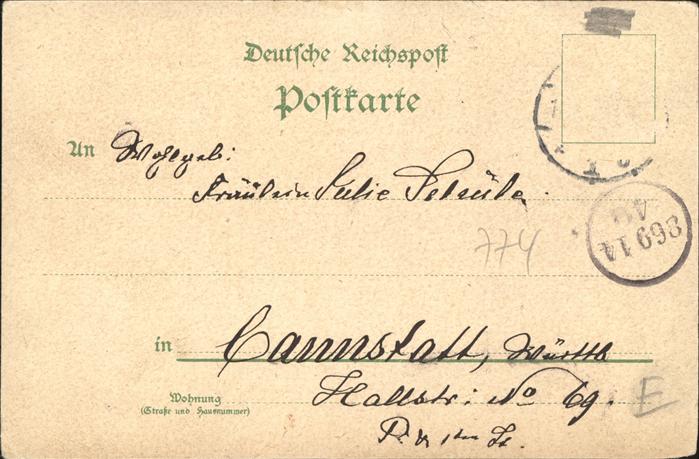 Deutsche Reichspost
Postkarte
An Wohlgeb:
Fräulein Julie Schäufele
774
in Cannstatt, Württb
Wohnung
(Straße und Hausnummer)
Hallstr: No 69.
E